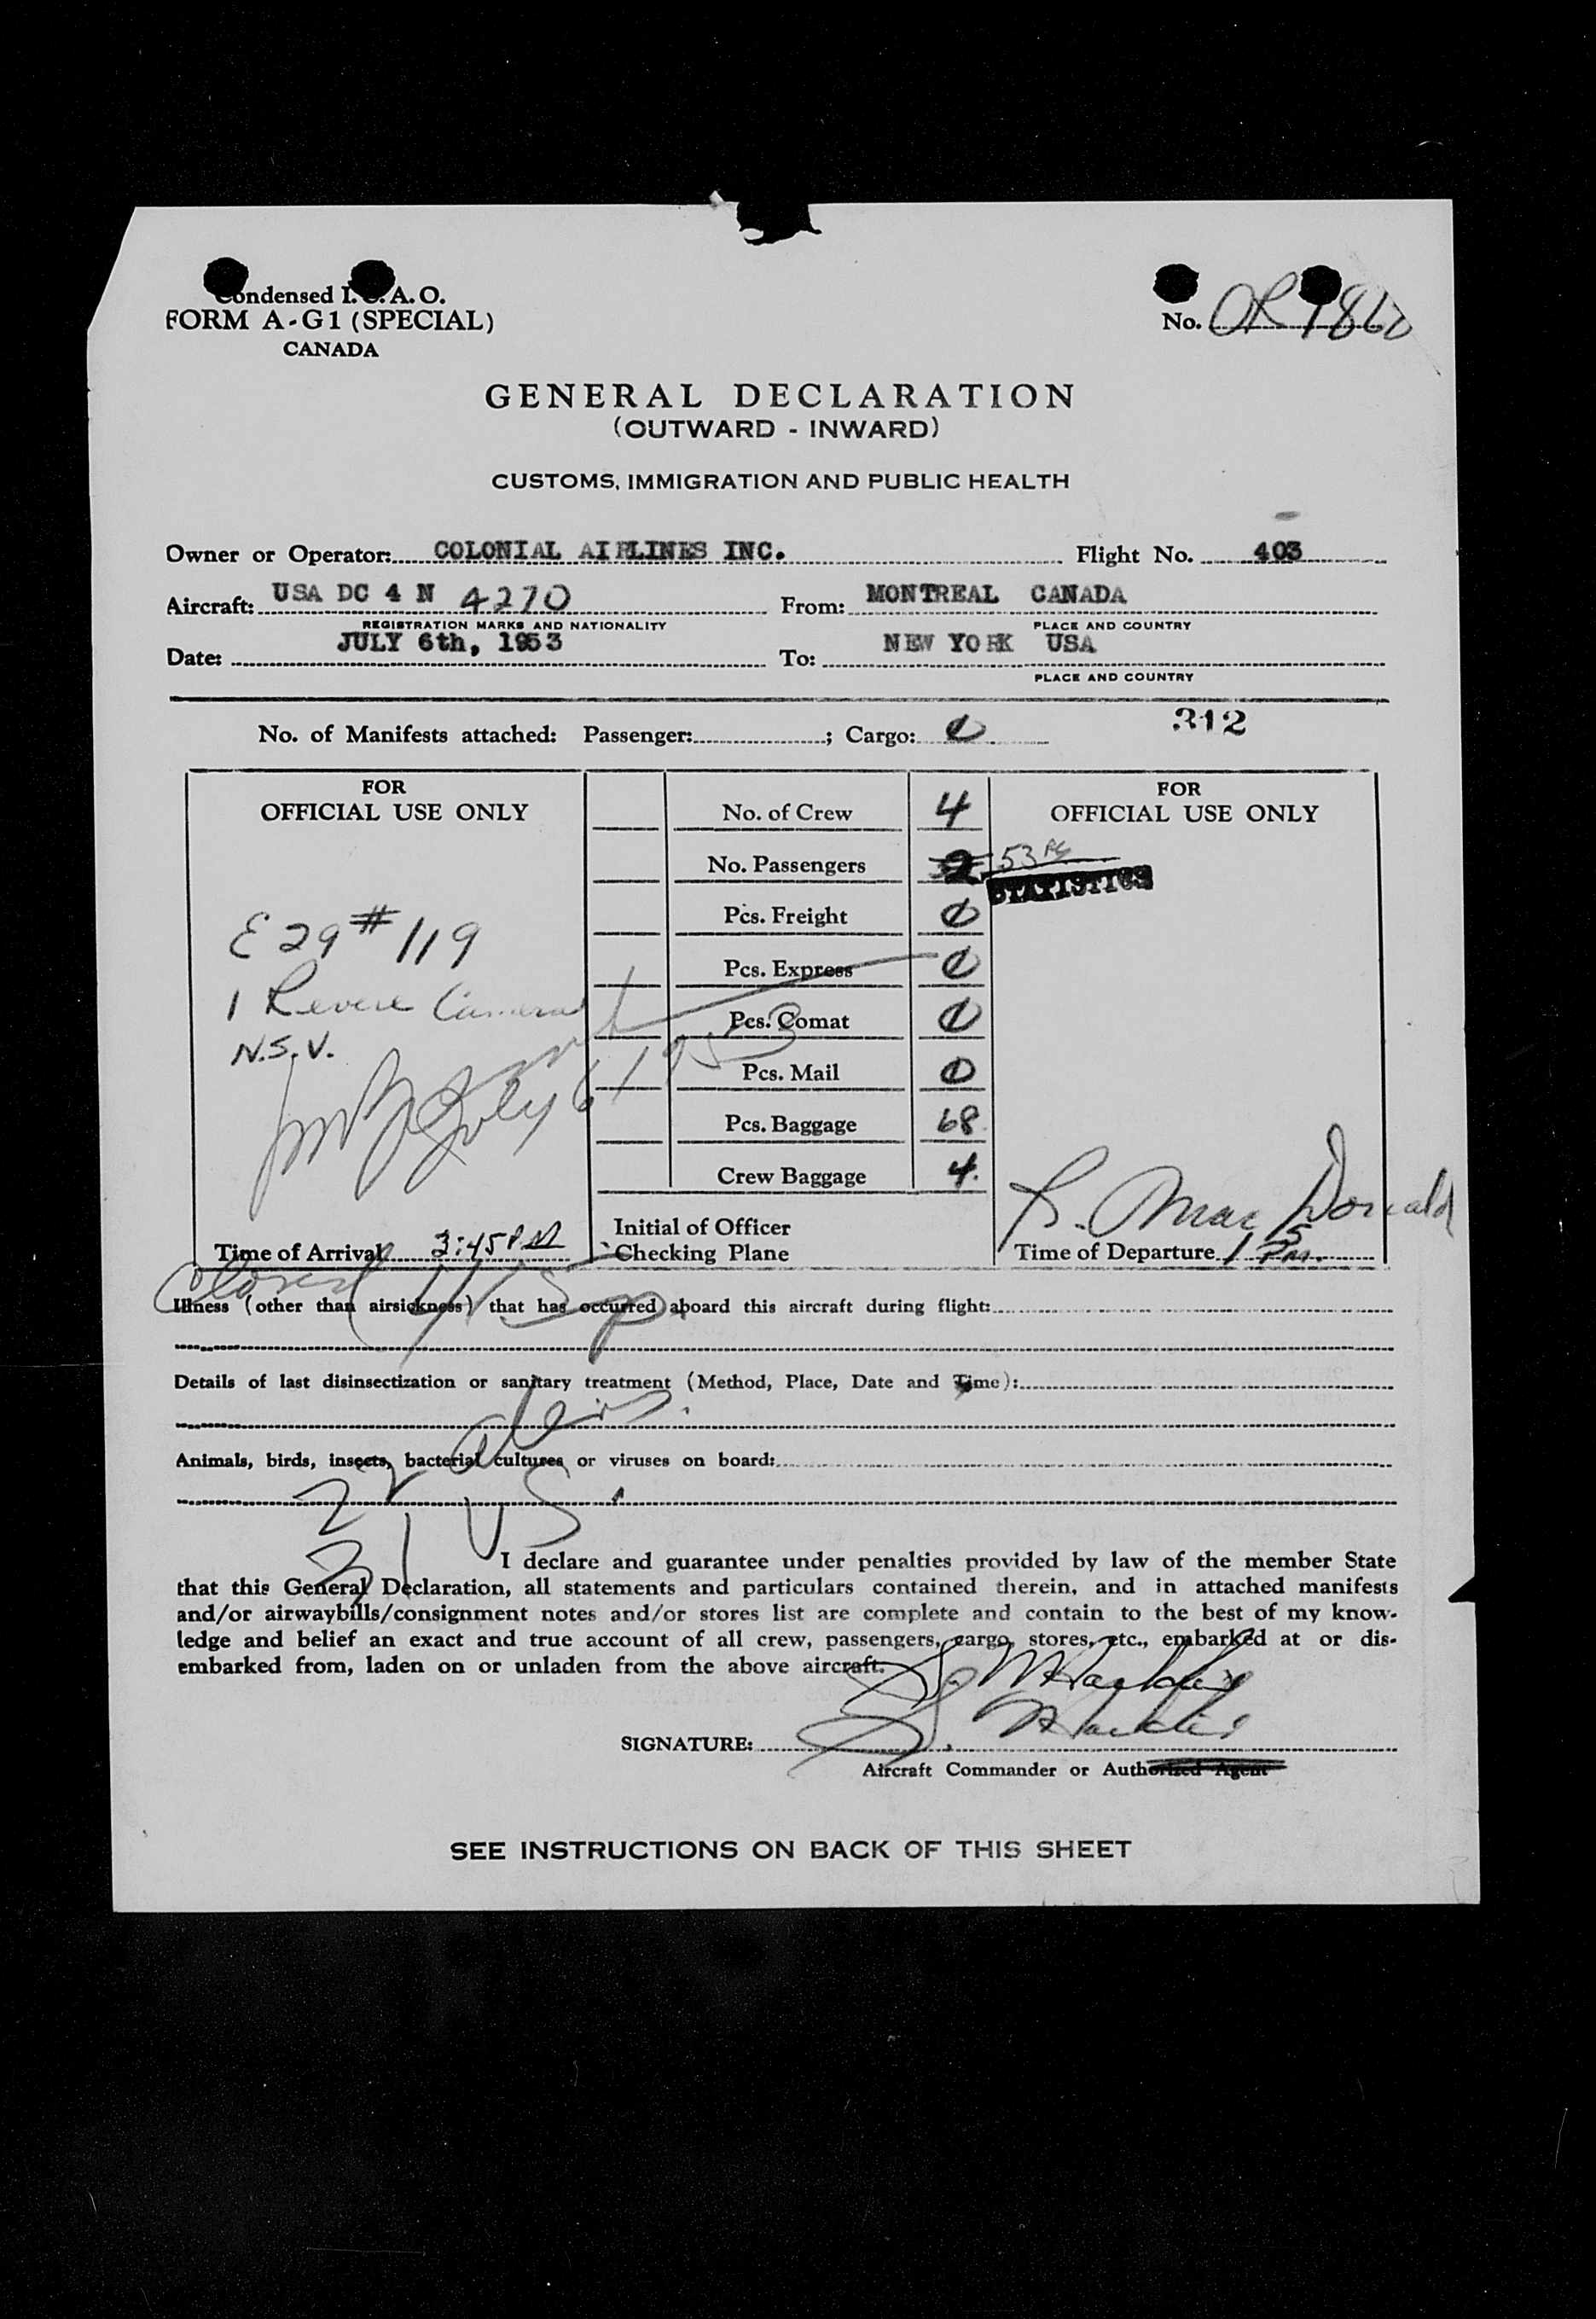 Condensed I.C.A.O.
FORM A-G1 (SPECIAL)
CANADA
No.
GENERAL DECLARATION
(OUTWARD - INWARD)
CUSTOMS, IMMIGRATION AND PUBLIC HEALTH
Owner or Operator: COLONIAL AIRLINES INC. Flight No. 403
Aircraft: USA DC 4 N 4270 From: MONTREAL CANADA
REGISTRATION MARKS AND NATIONALITY PLACE AND COUNTRY
Date: JULY 6th, 1953 To: NEW YORK USA
PLACE AND COUNTRY
No. of Manifests attached: Passenger: ; Cargo: 0 312
FOR OFFICIAL USE ONLY
No. of Crew 4
FOR OFFICIAL USE ONLY
No. Passengers 53
STATISTICS
Pcs. Freight 0
E 29 # 119
Pcs. Express 0
1 Revere Camera
Pcs. Comat 0
N.S.V.
Pcs. Mail 0
July 6/1953
Pcs. Baggage 68
Crew Baggage 4.
Mac Donald
Time of Arrival 3:45 P.M
Initial of Officer
Checking Plane
Time of Departure
Closed
Illness (other than airsickness) that has occurred aboard this aircraft during flight:
Details of last disinsectization or sanitary treatment (Method, Place, Date and Time):
Animals, birds, insects, bacterial cultures or viruses on board:
22
31 US
I declare and guarantee under penalties provided by law of the member State
that this General Declaration, all statements and particulars contained therein, and in attached manifests
and/or airwaybills/consignment notes and/or stores list are complete and contain to the best of my know-
ledge and belief an exact and true account of all crew, passengers, cargo, stores, etc., embarked at or dis-
embarked from, laden on or unladen from the above aircraft.
SIGNATURE:
Aircraft Commander or Authorized Agent
SEE INSTRUCTIONS ON BACK OF THIS SHEET